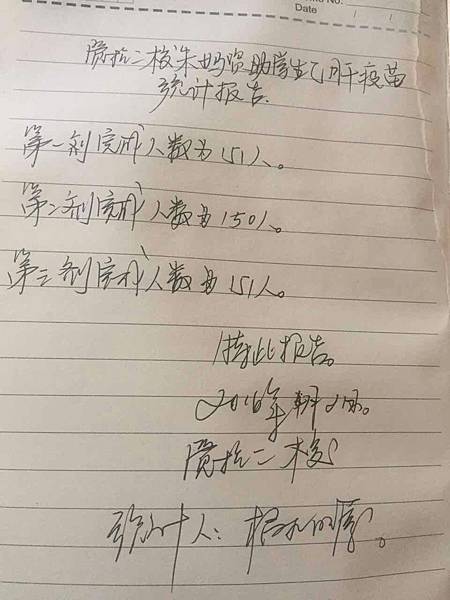 No.
Date / /
二校朱妈资助学生乙肝疫苗
统计报告.
第一剂完成人数为151人。
第二剂完成人数为150人。
第三剂完成人数为151人。
特此报告。
2016年
二校
统计人: